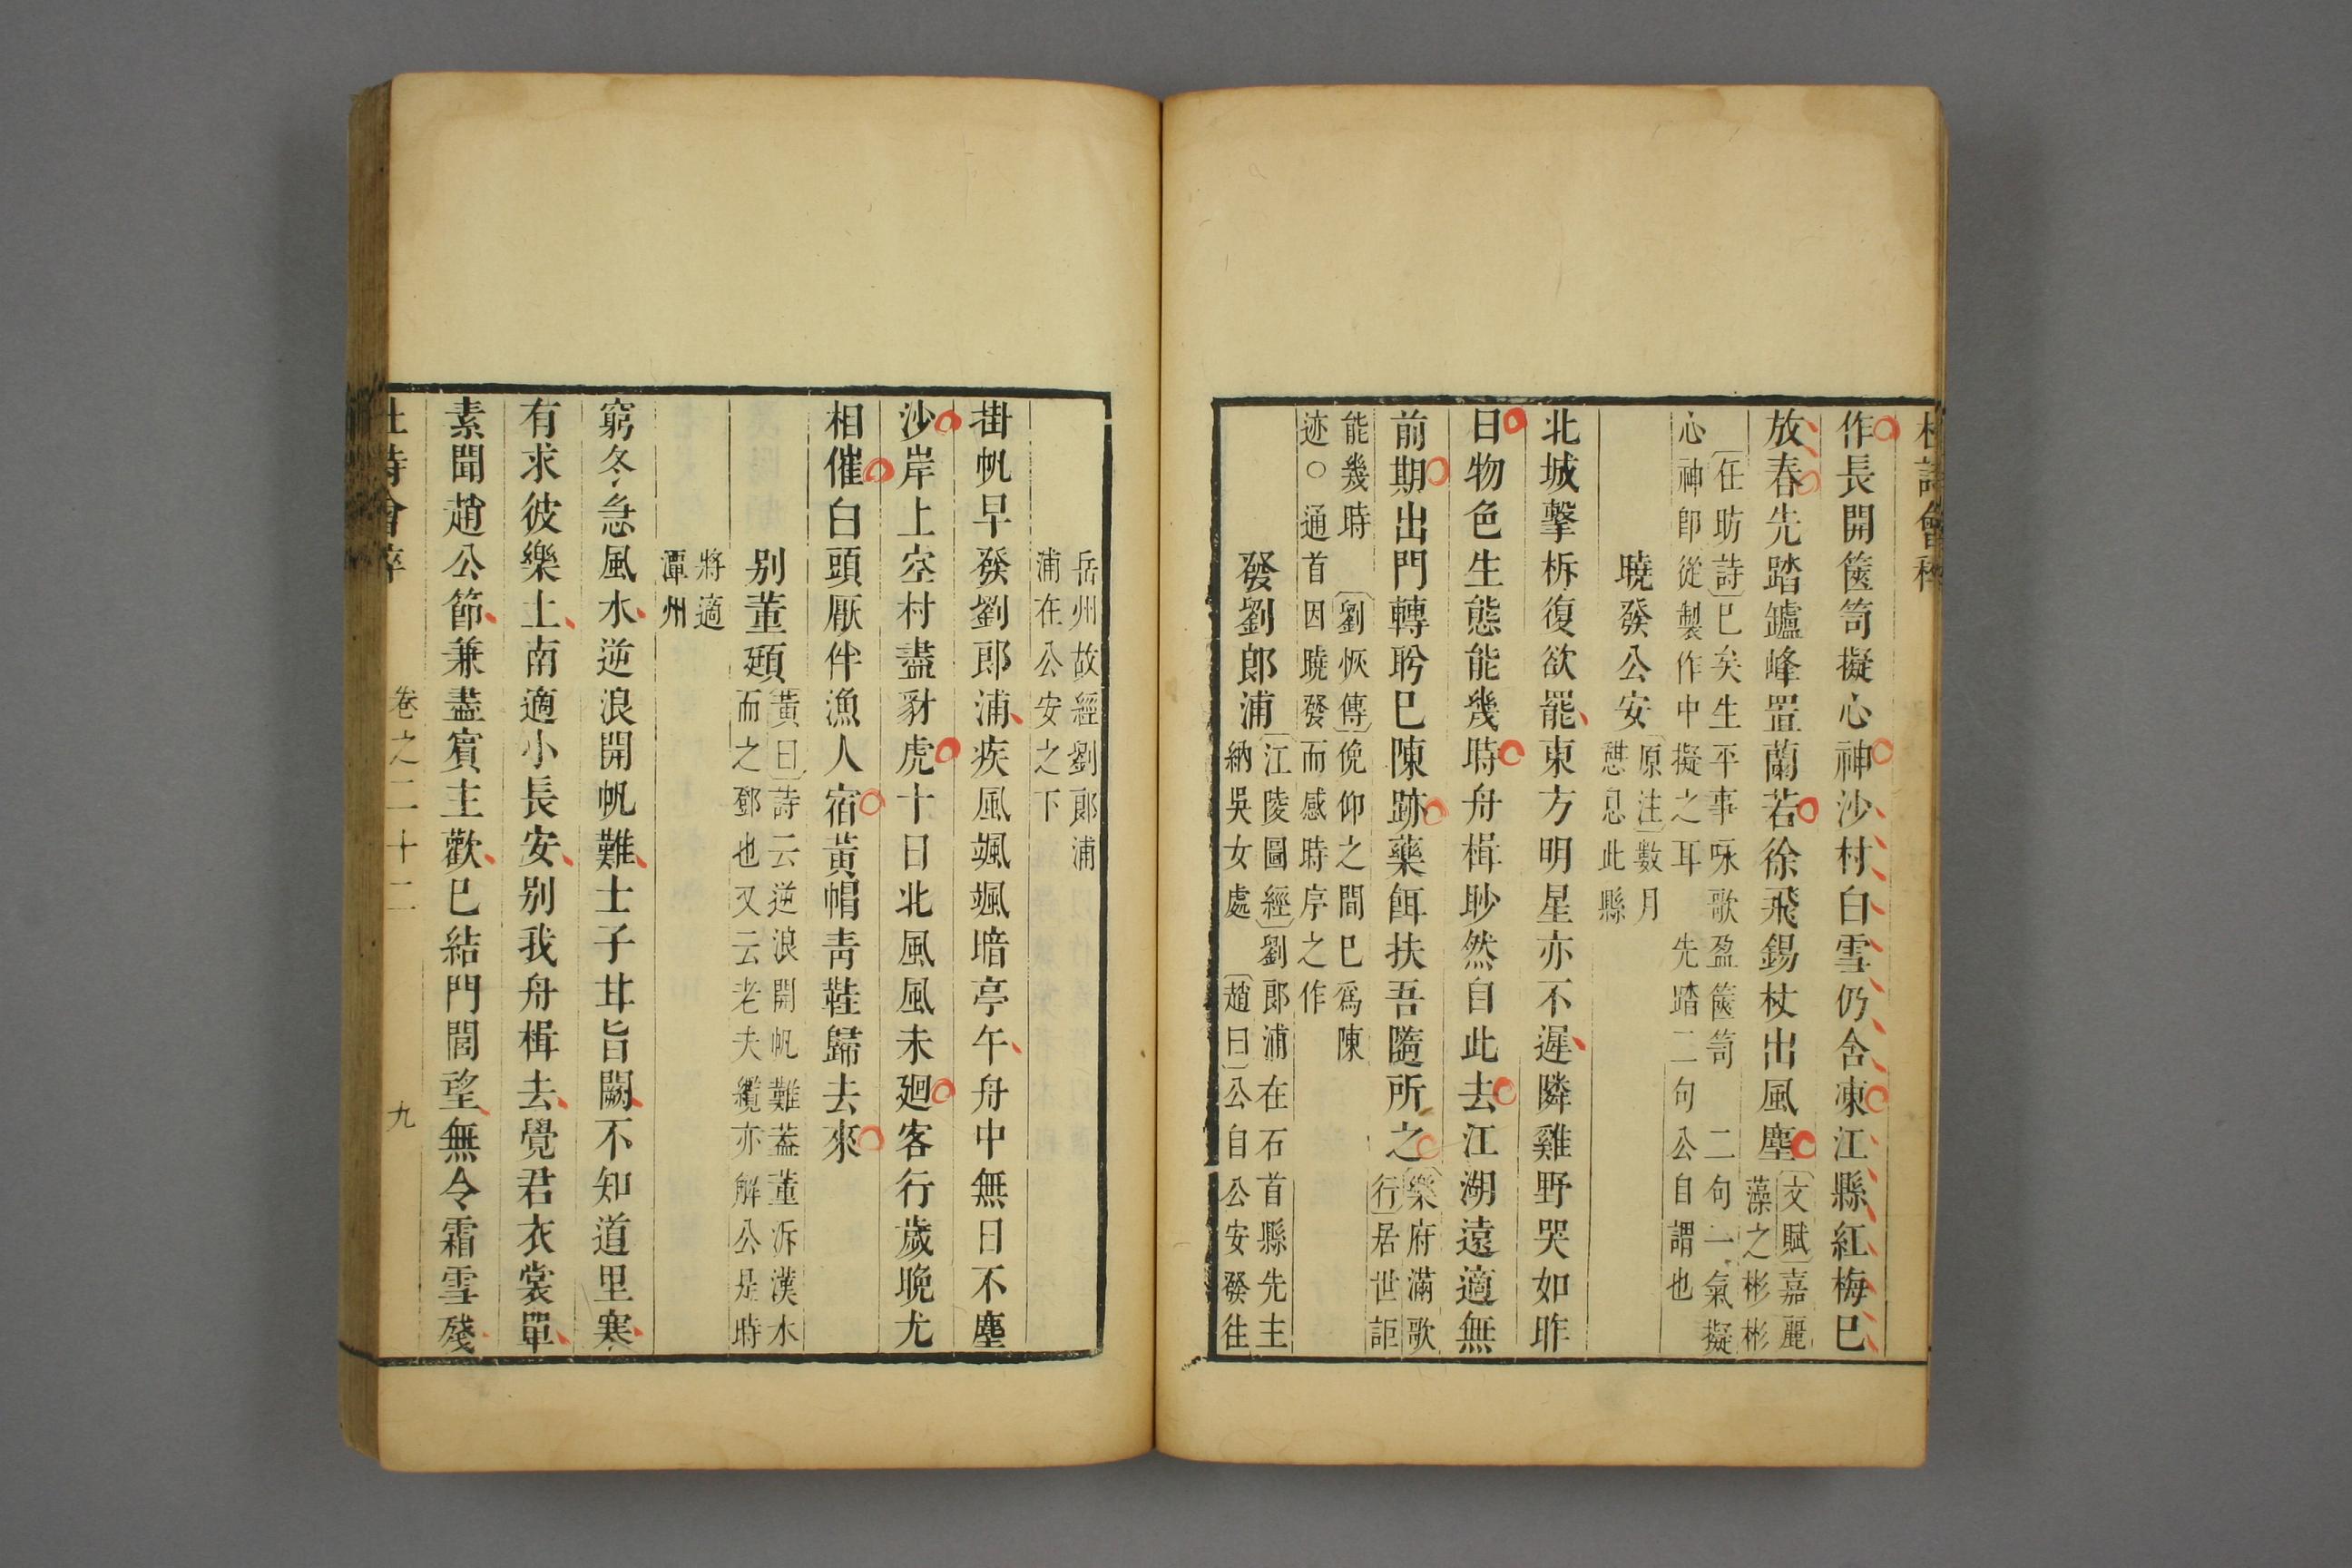 杜詩會稡
作長開篋笥擬心神沙村白雪仍含凍江縣紅梅已
放春先踏鑪峰置蘭若徐飛錫杖出風塵〔文賦〕嘉麗
藻之彬彬
〔任昉詩〕已矣生平事咏歌盈篋笥 二句一氣擬
心神卽從製作中擬之耳 先踏二句公自謂也
曉發公安〔原注〕數月
憇息此縣
北城擊柝復欲罷東方明星亦不遲隣雞野哭如昨
日物色生態能幾時舟楫眇然自此去江湖遠適無
前期出門轉盻已陳跡藥餌扶吾隨所之〔樂府滿歌
行〕居世詎
能幾時 〔劉恢傳〕俛仰之間已爲陳
迹○通首因曉發而感時序之作
發劉郎浦〔江陵圖經〕劉郎浦在石首縣先主
納吳女處〔趙曰〕公自公安發往
岳州故經劉郎浦
浦在公安之下
掛帆早發劉郎浦疾風颯颯暗亭午舟中無日不塵
沙岸上空村盡豺虎十日北風風未廻客行歲晚尤
相催白頭厭伴漁人宿黃帽靑鞋歸去來
别董頲〔黃曰〕詩云逆浪開帆難蓋董泝漢水
而之鄧也又云老夫纜亦解公是時
將適
潭州
窮冬急風水逆浪開帆難士子甘旨闕不知道里寒
有求彼樂土南適小長安别我舟楫去覺君衣裳單
素聞趙公節兼盡賓主歡已結門閭望無令霜雪殘
杜詩會稡 卷之二十二 九